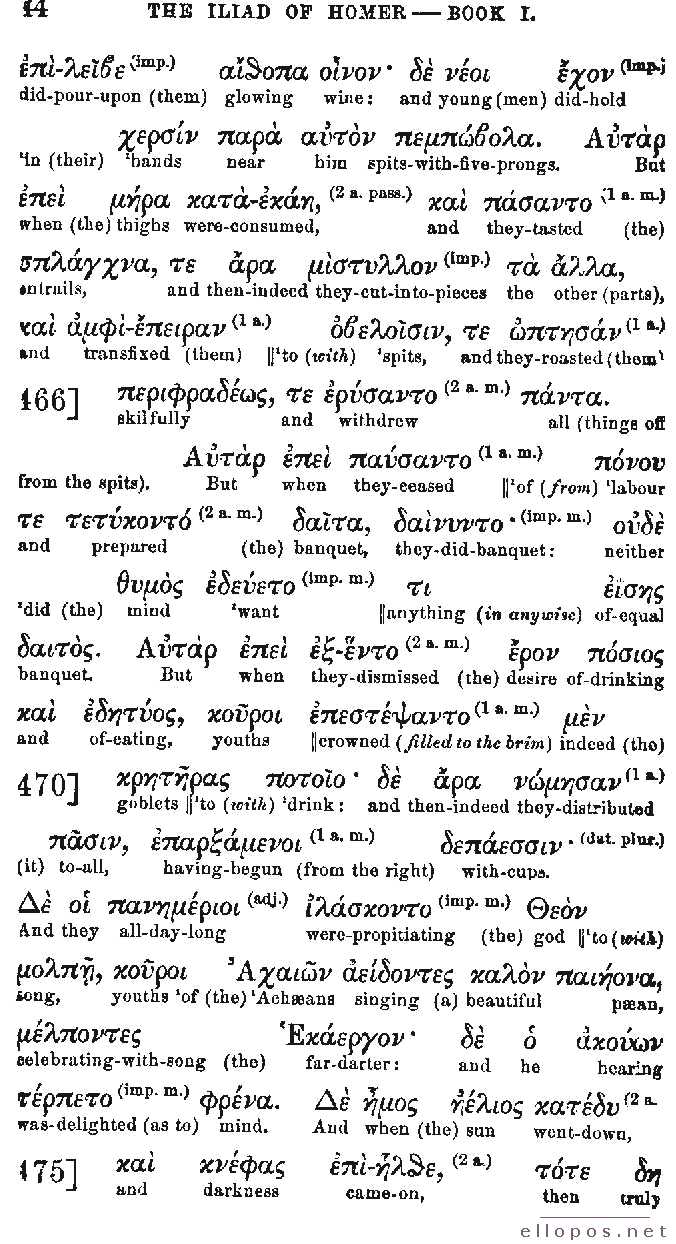 44 THE ILIAD OF HOMER — BOOK I.
ἐπὶ-λεῖβε (imp.) αἴϑοπα οἶνον· δὲ νέοι ἔχον (imp.)
did-pour-upon (them) glowing wine: and young (men) did-hold
χερσίν παρὰ αὐτὸν πεμπώϐολα. Αὐτὰρ
'in (their) 'hands near him spits-with-five-prongs. But
ἐπεὶ μήρα κατὰ-ἐκάη, (2 a. pass.) καὶ πάσαντο (1 a. m.)
when (the) thighs were-consumed, and they-tasted (the)
σπλάγχνα, τε ἄρα μὶστυλλον (imp.) τὰ ἄλλα,
entrails, and then-indeed they-cut-into-pieces the other (parts),
καὶ ἀμφὶ-ἔπειραν (1 a.) ὀϐελοῖσιν, τε ὠπτησάν (1 a.)
and transfixed (them) ||'to (with) 'spits, and they-roasted (them)
466] περιφραδέως, τε ἐρύσαντο (2 a. m.) πάντα.
skilfully and withdrew all (things off
Αὐτὰρ ἐπεὶ παύσαντο (1 a. m.) πόνου
from the spits). But when they-ceased ||'of (from) 'labour
τε τετύκοντό (2 a. m.) δαῖτα, δαίνυντο· (imp. m.) οὐδὲ
and prepared (the) banquet, they-did-banquet: neither
θυμὸς ἐδεύετο (imp. m.) τι ἐΐσης
'did (the) mind 'want ||anything (in anywise) of-equal
δαιτὸς. Αὐτὰρ ἐπεὶ ἐξ-ἕντο (2 a. m.) ἔρον πόσιος
banquet. But when they-dismissed (the) desire of-drinking
καὶ ἐδητύος, κοῦροι ἐπεστέψαντο (1 a. m.) μὲν
and of-eating, youths ||crowned (filled to the brim) indeed (the)
470] κρητῆρας ποτοῖο· δὲ ἄρα νώμησαν (1 a.)
goblets ||'to (with) 'drink: and then-indeed they-distributed
πᾶσιν, ἐπαρξάμενοι (1 a. m.) δεπάεσσιν· (dat. plur.)
(it) to-all, having-begun (from the right) with-cups.
Δὲ οἱ πανημέριοι (adj.) ἱλάσκοντο (imp. m.) Θεὸν
And they all-day-long were-propitiating (the) god ||'to (with)
μολπῇ, κοῦροι Ἀχαιῶν ἀείδοντες καλὸν παιήονα,
song, youths 'of (the) 'Achæans singing (a) beautiful pæan,
μέλποντες Ἑκάεργον· δὲ ὁ ἀκούων
celebrating-with-song (the) far-darter: and he hearing
τέρπετο (imp. m.) φρένα. Δὲ ἦμος ἠέλιος κατέδυ (2 a.
was-delighted (as to) mind. And when (the) sun went-down,
475] καὶ κνέφας ἐπὶ-ἦλϑε, (2 a.) τότε δη
and darkness came-on, then truly
ellopos.net